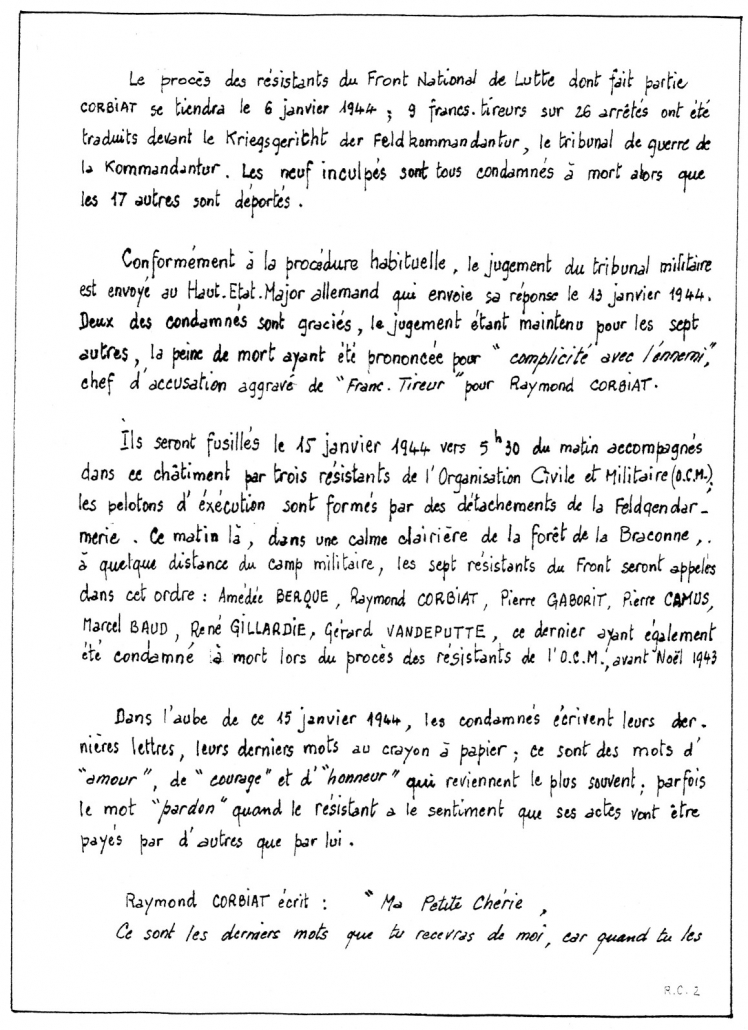 Le procès des résistants du Front National de Lutte dont fait partie
CORBIAT se tiendra le 6 janvier 1944 ; 9 francs.tireurs sur 26 arrêtés ont été
traduits devant le Kriegsgeritht der Feldkommandantur, le tribunal de guerre de
la Kommandantur. Les neuf inculpés sont tous condamnés à mort alors que
les 17 autres sont déportés.
Conformément à la procédure habituelle, le jugement du tribunal militaire
est envoyé au Haut.Etat.Major allemand qui envoie sa réponse le 13 janvier 1944.
Deux des condamnés sont graciés, le jugement étant maintenu pour les sept
autres, la peine de mort ayant été prononcée pour "complicité avec l'énnemi",
chef d'accusation aggravé de "Franc.Tireur" pour Raymond CORBIAT.
Ils seront fusillés le 15 janvier 1944 vers 5h30 du matin accompagnés
dans ce châtiment par trois résistants de l'Organisation Civile et Militaire (O.C.M.);
les pelotons d'éxécution sont formés par des détachements de la Feldgendar_
merie. Ce matin là, dans une calme clairière de la forêt de la Braconne,.
à quelque distance du camp militaire, les sept résistants du Front seront appelés
dans cet ordre : Amédée BERQUE, Raymond CORBIAT, Pierre GABORIT, Pierre CAMUS,
Marcel BAUD, René GILLARDIE, Gérard VANDEPUTTE, ce dernier ayant également
été condamné à mort lors du procès des résistants de l'O.C.M., avant Noël 1943
Dans l'aube de ce 15 janvier 1944, les condamnés écrivent leurs der.
nières lettres, leurs derniers mots au crayon à papier ; ce sont des mots d'
"amour", de "courage" et d'"honneur" qui reviennent le plus souvent ; parfois
le mot "pardon" quand le résistant a le sentiment que ses actes vont être
payés par d'autres que par lui.
Raymond CORBIAT écrit : "Ma Petite Chérie,
Ce sont les derniers mots que tu recevras de moi, car quand tu les
R.C.2